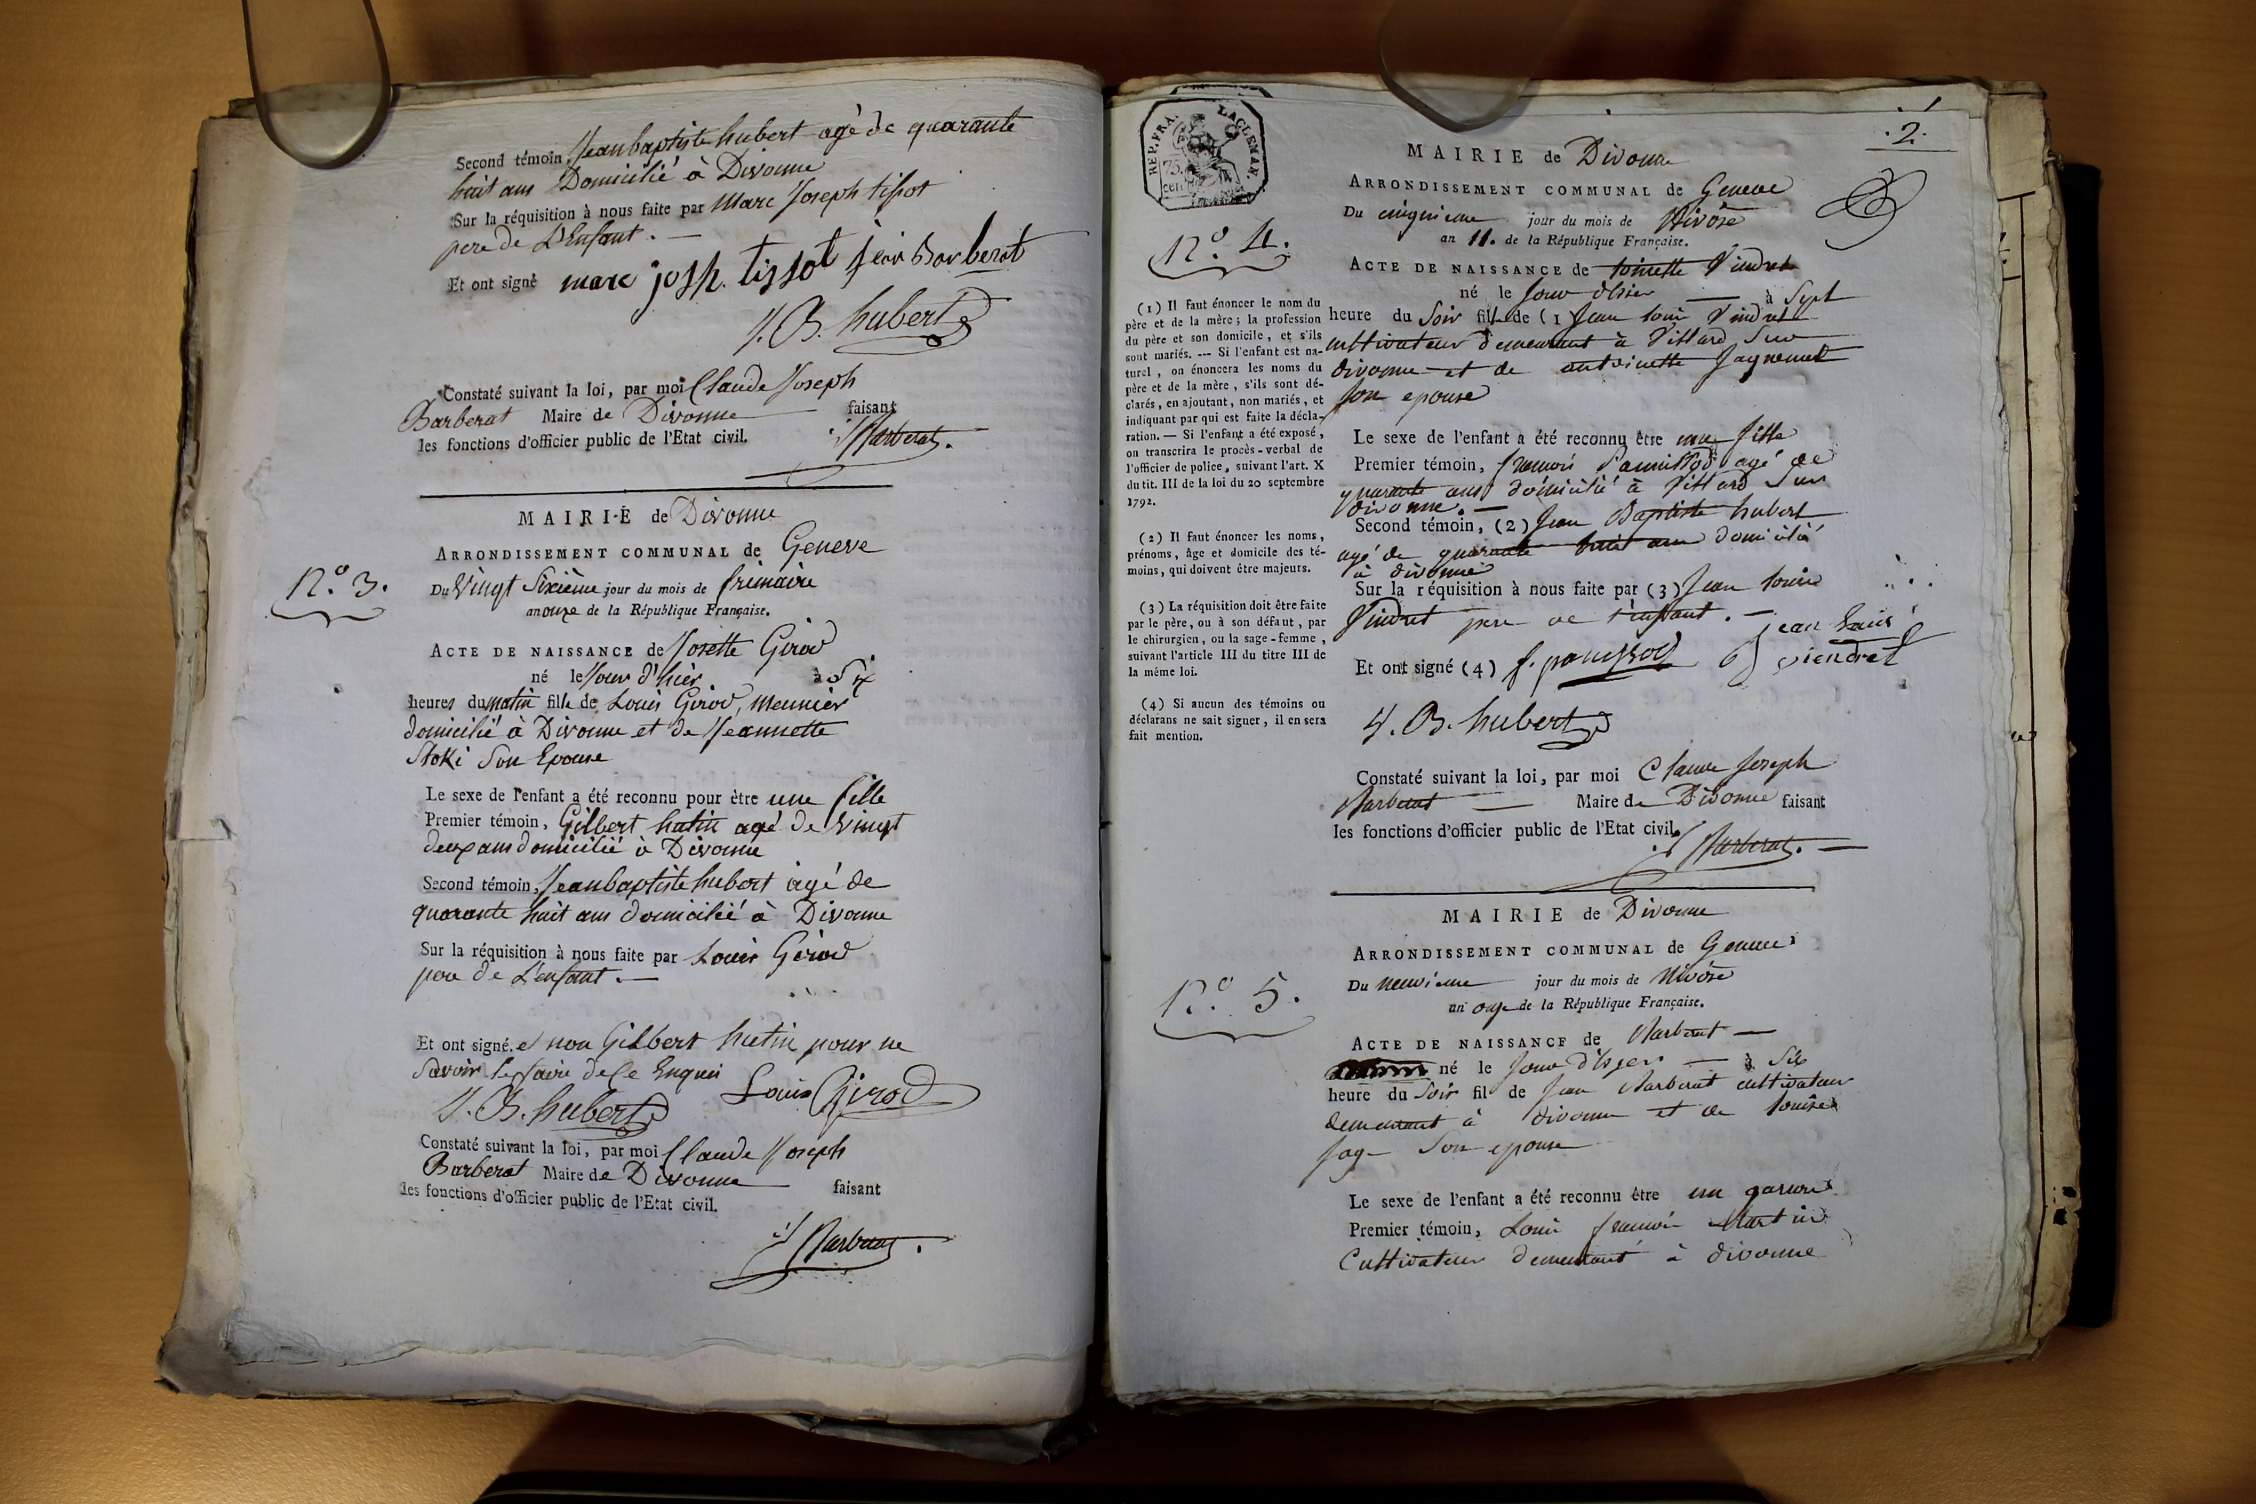 Second témoin, Jean baptiste hubert agé de quarante
huit ans Domicilié à Divonne
Sur la réquisition à nous faite par Marc Joseph tissot
pere de L'Enfant. —
Et ont signé marc josh. tissot jean Barberat
J. B. hubert
Constaté suivant la loi, par moi Claude Joseph
Barberat Maire de Divonne faisant
les fonctions d'officier public de l'Etat civil.
Barberat.
MAIRIE de Divonne
ARRONDISSEMENT COMMUNAL de Geneve
N.o 3.
Du Vingt Sixième jour du mois de frimaire
an onze de la République Française.
ACTE DE NAISSANCE de Josette Girod
né le Jour d'hier à Six
heures du matin fille de Louis Girod, Meunier
domicilié à Divonne et de Jeannette
Stoki Son Epouse
Le sexe de l'enfant a été reconnu pour être une fille
Premier témoin, Gilbert hutin agé de Vingt
deux ans domicilié à Divonne
Second témoin, Jean baptiste hubert agé de
quarante huit ans domicilié à Divonne
Sur la réquisition à nous faite par Louis Girod
pere de L'enfant. —
Et ont signé. et non Gilbert hutin pour ne
Savoir le faire de ce Enquis
J. B. hubert Louis Girod
Constaté suivant la loi, par moi Claude Joseph
Barberat Maire de Divonne faisant
les fonctions d'officier public de l'Etat civil.
Barberat.
REP. FRA.
75.
cen
.2.
MAIRIE de Divonne
ARRONDISSEMENT COMMUNAL de Geneve
Du cinquieme jour du mois de Nivôse
an 11. de la République Française.
N.o 4.
ACTE DE NAISSANCE de toinette Vindret
né le Jour d'hier — à Sept
heure du Soir fille de (1) Jean louis Vindret
cultivateur demeurant à Villard Sur
divonne et de antoinette Jaquemet
Son epouse
(1) Il faut énoncer le nom du
père et de la mère; la profession
du père et son domicile, et s'ils
sont mariés. --- Si l'enfant est na-
turel, on énoncera les noms du
père et de la mère, s'ils sont dé-
clarés, en ajoutant, non mariés, et
indiquant par qui est faite la décla-
ration. — Si l'enfant a été exposé,
on transcrira le procès-verbal de
l'officier de police, suivant l'art. X
du tit. III de la loi du 20 septembre
1792.
(2) Il faut énoncer les noms,
prénoms, âge et domicile des té-
moins, qui doivent être majeurs.
(3) La réquisition doit être faite
par le père, ou à son défaut, par
le chirurgien, ou la sage-femme,
suivant l'article III du titre III de
la même loi.
(4) Si aucun des témoins ou
déclarans ne sait signer, il en sera
fait mention.
Le sexe de l'enfant a été reconnu être une fille
Premier témoin, françois Panissod agé de
quarante ans domicilié à Villard Sur
divonne. —
Second témoin, (2) Jean Baptiste hubert
agé de quarante huit ans domicilié
à divonne
Sur la réquisition à nous faite par (3) Jean louis
Vindret pere de l'enfant. —
Et ont signé (4) f. panissod jean louis
viendret
J. B. hubert
Constaté suivant la loi, par moi Claude Joseph
Barberat — Maire de Divonne faisant
les fonctions d'officier public de l'Etat civil.
Barberat. —
MAIRIE de Divonne
ARRONDISSEMENT COMMUNAL de Geneve
Du neuvieme jour du mois de Nivôse
an onze de la République Française.
N.o 5.
ACTE DE NAISSANCE de Barberat —
né le Jour d'hyer — à Six
heure du Soir fil de Jean Barberat cultivateur
demeurant à divonne et de louise
Son epouse
Le sexe de l'enfant a été reconnu être un garçon
Premier témoin, Louis françois Martin
Cultivateur demeurant à divonne